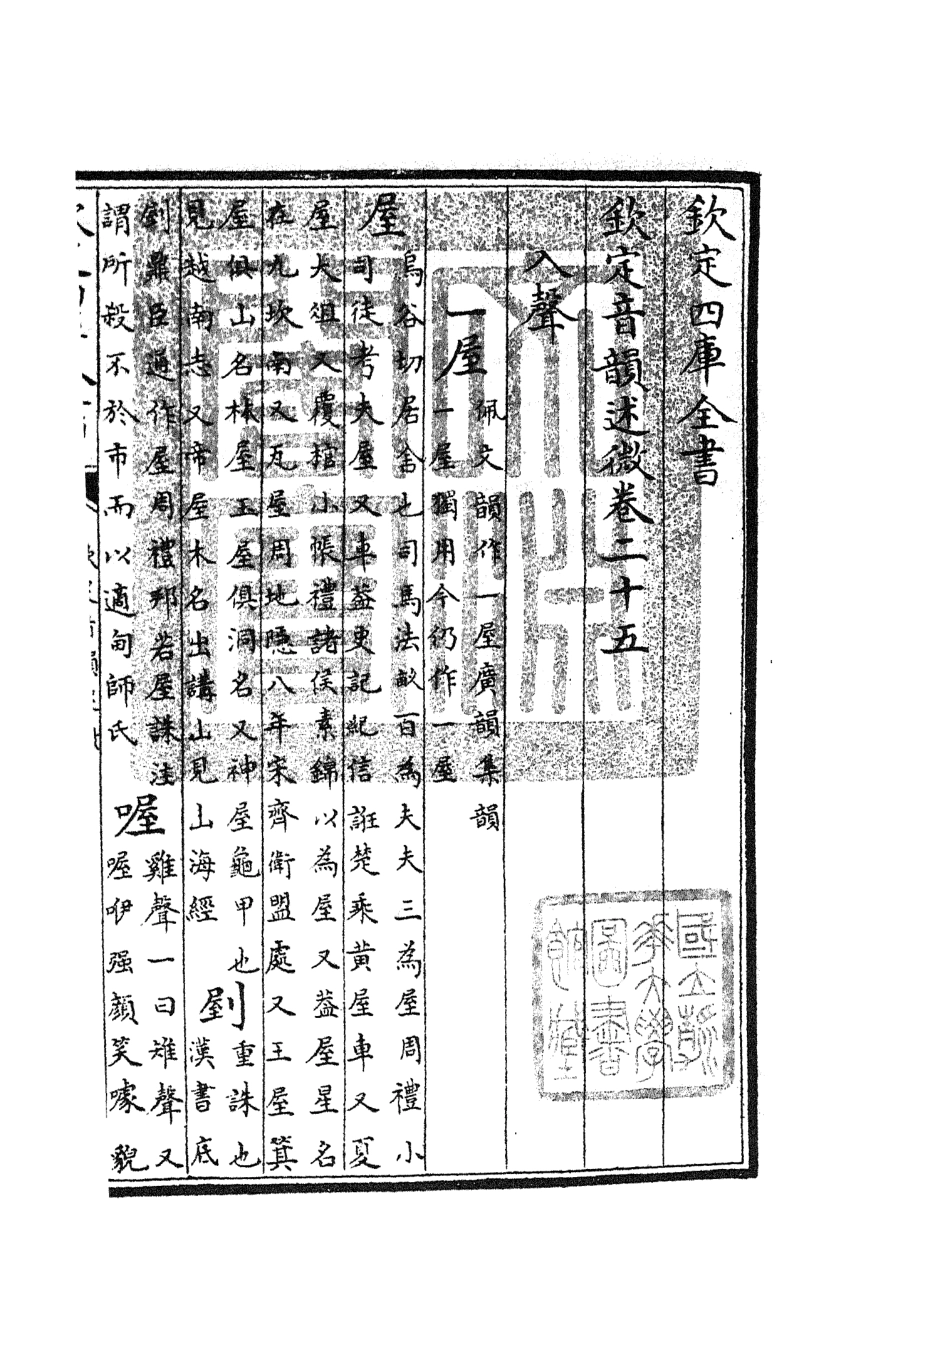 欽定四庫全書
欽定音韻述微卷二十五
入聲
一屋
佩文韻作一屋廣韻集韻
一屋獨用今仍作一屋
屋
烏谷切居舍也司馬法畝百為夫夫三為屋周禮小
司徒考夫屋又車葢史記紀信誑楚乘黃屋車又夏
屋大俎又覆棺小帳禮諸侯素錦以為屋又葢屋星名
在九坎南又瓦屋周地隱八年宋齊衛盟處又王屋箕
屋俱山名林屋玉屋俱洞名又神屋龜甲也
見越南志又帝屋木名出講山見山海經
剭
重誅也漢書底
剭鼎臣通作屋周禮邦若屋誅注
謂所殺不於市而以適甸師氏
喔
雞聲一曰雉聲又
喔咿强顏笑噱貌
國立清
華大學
圖書
館藏